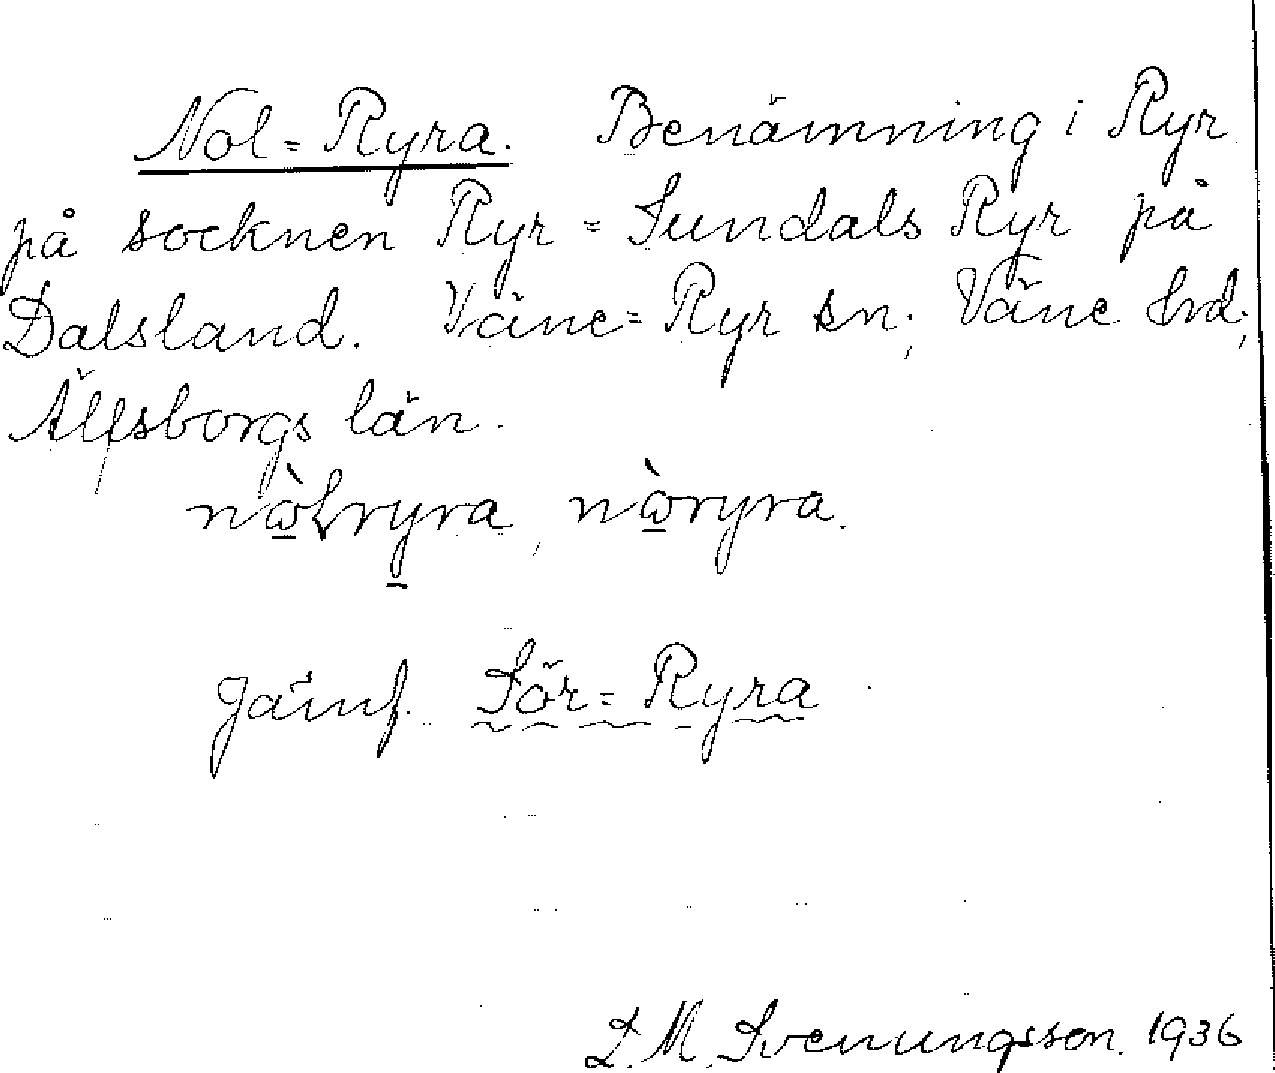 Nol=Ryra. Benämning i Ryr
på socknen Ryr = Sundals Ryr på
Dalsland. Väne=Ryr sn; Väne hrd;
Älfsborgs län.
, nὼryra.
Jämf. Sör=Ryra
L. M. Svenungsson. 1936